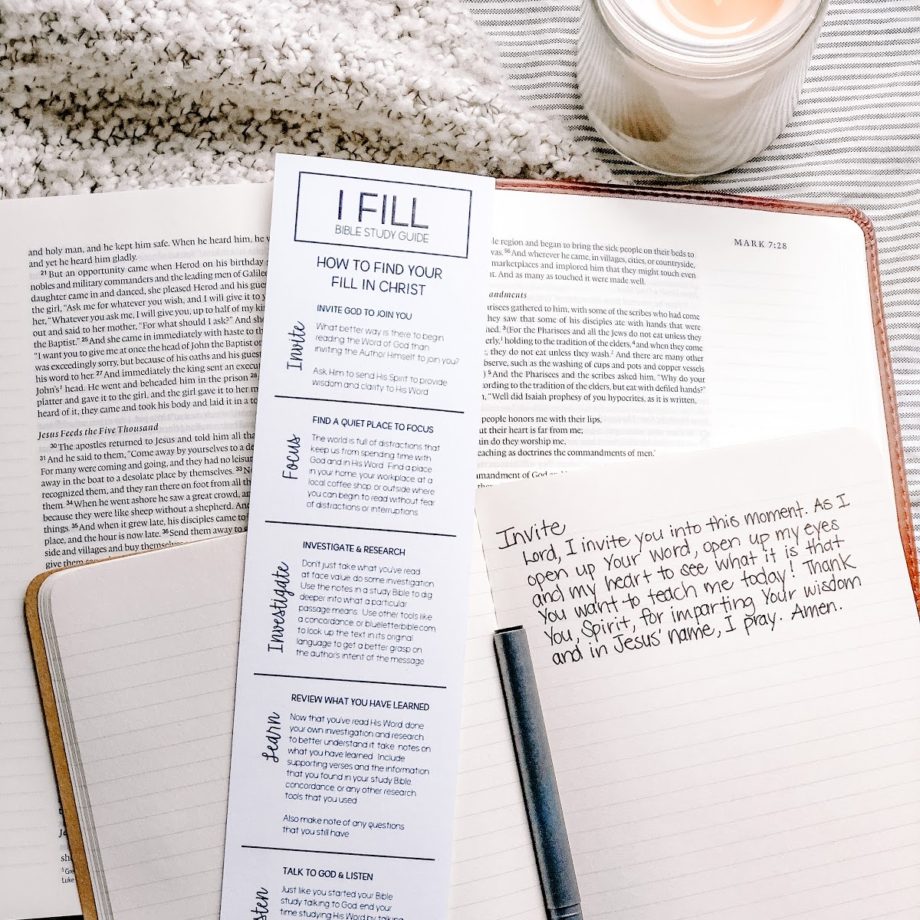 and holy man, and he kept him safe. When he heard him, he
and yet he heard him gladly.
21 But an opportunity came when Herod on his birthday
nobles and military commanders and the leading men of Galilee
daughter came in and danced, she pleased Herod and his
the girl, "Ask me for whatever you wish, and I will give it to
her, "Whatever you ask me, I will give you, up to half of my
out and said to her mother, "For what should I ask?" And she
the Baptist." 25 And she came in immediately with haste to
"I want you to give me at once the head of John the Baptist on
was exceedingly sorry, but because of his oaths and his
his word to her. 27 And immediately the king sent an
John's head. He went and beheaded him in the prison 28
platter and gave it to the girl, and the girl gave it to her
heard of it, they came and took his body and laid it in a
Jesus Feeds the Five Thousand
30 The apostles returned to Jesus and told him all
31 And he said to them, "Come away by yourselves to a
For many were coming and going, and they had no leisure
away in the boat to a desolate place by themselves.
recognized them, and they ran there on foot from all
them. 34 When he went ashore he saw a great crowd,
because they were like sheep without a shepherd. And
things. 35 And when it grew late, his disciples came to
place, and the hour is now late. 36 Send them away
side and villages and buy themselves
give them
I FILL
BIBLE STUDY GUIDE
HOW TO FIND YOUR
FILL IN CHRIST
Invite
INVITE GOD TO JOIN YOU
What better way is there to begin
reading the Word of God than
inviting the Author Himself to join you?
Ask Him to send His Spirit to provide
wisdom and clarity to His Word
Focus
FIND A QUIET PLACE TO FOCUS
The world is full of distractions that
keep us from spending time with
God and in His Word. Find a place
in your home, your workplace at a
local coffee shop, or outside where
you can begin to read without fear
of distractions or interruptions.
Investigate
INVESTIGATE & RESEARCH
Don't just take what you've read
at face value, do some investigation.
Use the notes in a study Bible to dig
deeper into what a particular
passage means. Use other tools like
a concordance or blueletterbible.com
to look up the text in its original
language to get a better grasp on
the author's intent of the message
Learn
REVIEW WHAT YOU HAVE LEARNED
Now that you've read His Word, done
your own investigation and research
to better understand it, take notes on
what you have learned. Include
supporting verses and the information
that you found in your study Bible,
concordance, or any other research
tools that you used
Also make note of any questions
that you still have
sten
TALK TO GOD & LISTEN
Just like you started your Bible
study talking to God, end your
time studying His Word by talking
MARK 7:28
le region and began to bring the sick people on their beds to
was. 56 And wherever he came, in villages, cities, or countryside,
marketplaces and implored him that they might touch even
And as many as touched it were made well.
andments
arisees gathered to him, with some of the scribes who had come
hey saw that some of his disciples ate with hands that were
3 (For the Pharisees and all the Jews do not eat unless they
holding to the tradition of the elders, 4 and when they come
they do not eat unless they wash. And there are many other
observe, such as the washing of cups and pots and copper vessels
5 And the Pharisees and the scribes asked him, "Why do your
ording to the tradition of the elders, but eat with defiled hands?"
"Well did Isaiah prophesy of you hypocrites, as it is written,
people honors me with their lips,
ut their heart is far from me;
in do they worship me,
eaching as doctrines the commandments of men.'
mandment of God
Invite
Lord, I invite you into this moment. As I
open up Your Word, open up my eyes
and my heart to see what it is that
You want to teach me today! Thank
You, Spirit, for imparting Your wisdom
and in Jesus' name, I pray. Amen.